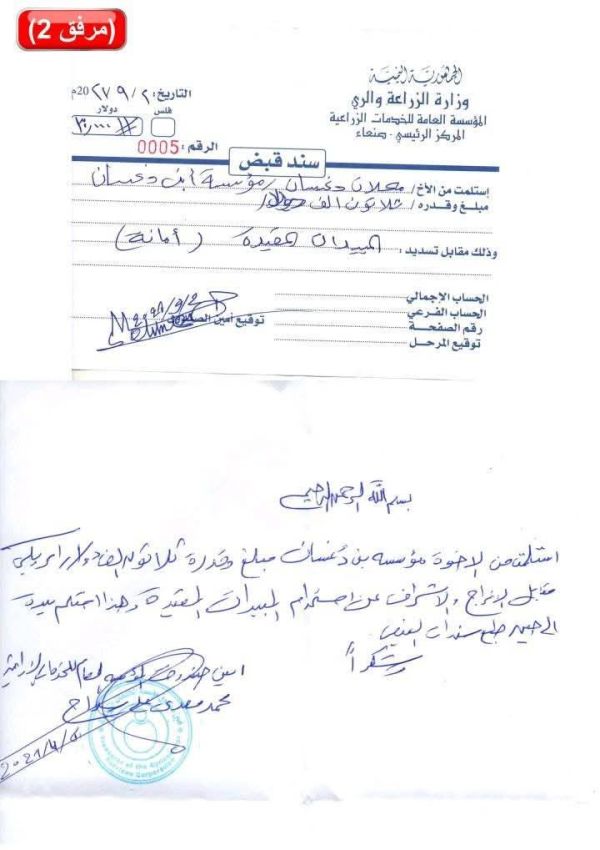 (مرفق 2)
الجمهورية اليمنية
وزارة الزراعة والري
المؤسسة العامة للخدمات الزراعية
المركز الرئيسي - صنعاء
التاريخ: ٢ / ٩ / 20م
فلس دولار
٣٠,٠٠٠
الرقم: 0005
سند قبض
إستلمت من الأخ/ محلات دغسان / مؤسسة ابن دغسان
مبلغ وقدره / ثلاثون الف دولار
وذلك مقابل تسديد: المبيدات المقيدة (أمانة)
الحساب الإجمالي
الحساب الفرعي
رقم الصفحة
توقيع المرحل
توقيع أمين الصندوق
بسم الله الرحمن الرحيم
استلمت من الاخوة مؤسسه بن دغسان مبلغ وقدرة ثلاثون الف دولار امريكي
مقابل الافراج والاشراف عن استخدام المبيدات المقيدة وهذا استلام بيدة
الى حين طبع سندات القبض
وشكراً
امين صندوق المؤسسه العامه للخدمات الزراعية
محمد مهدي علي